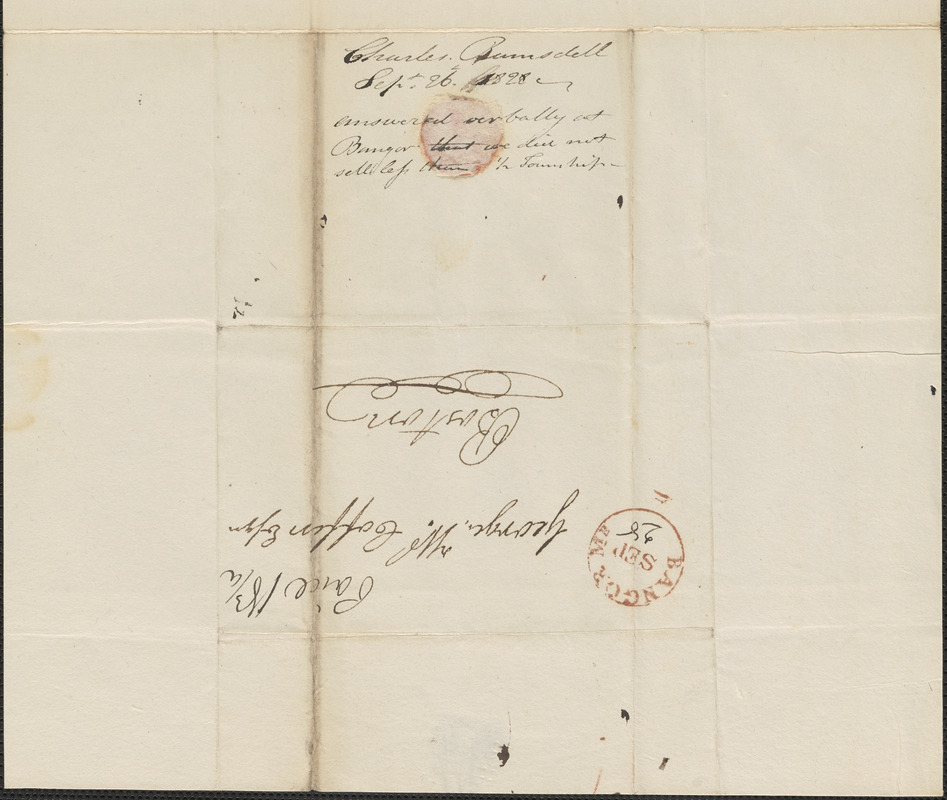 Charles. Rumsdell
Sept. 26. 1828
answered verbally at
Bangor that we did not
sell less than ½ Township
Boston
George. W. Coffin Esqr
Paid 18¾
BANGOR ME
SEP
28